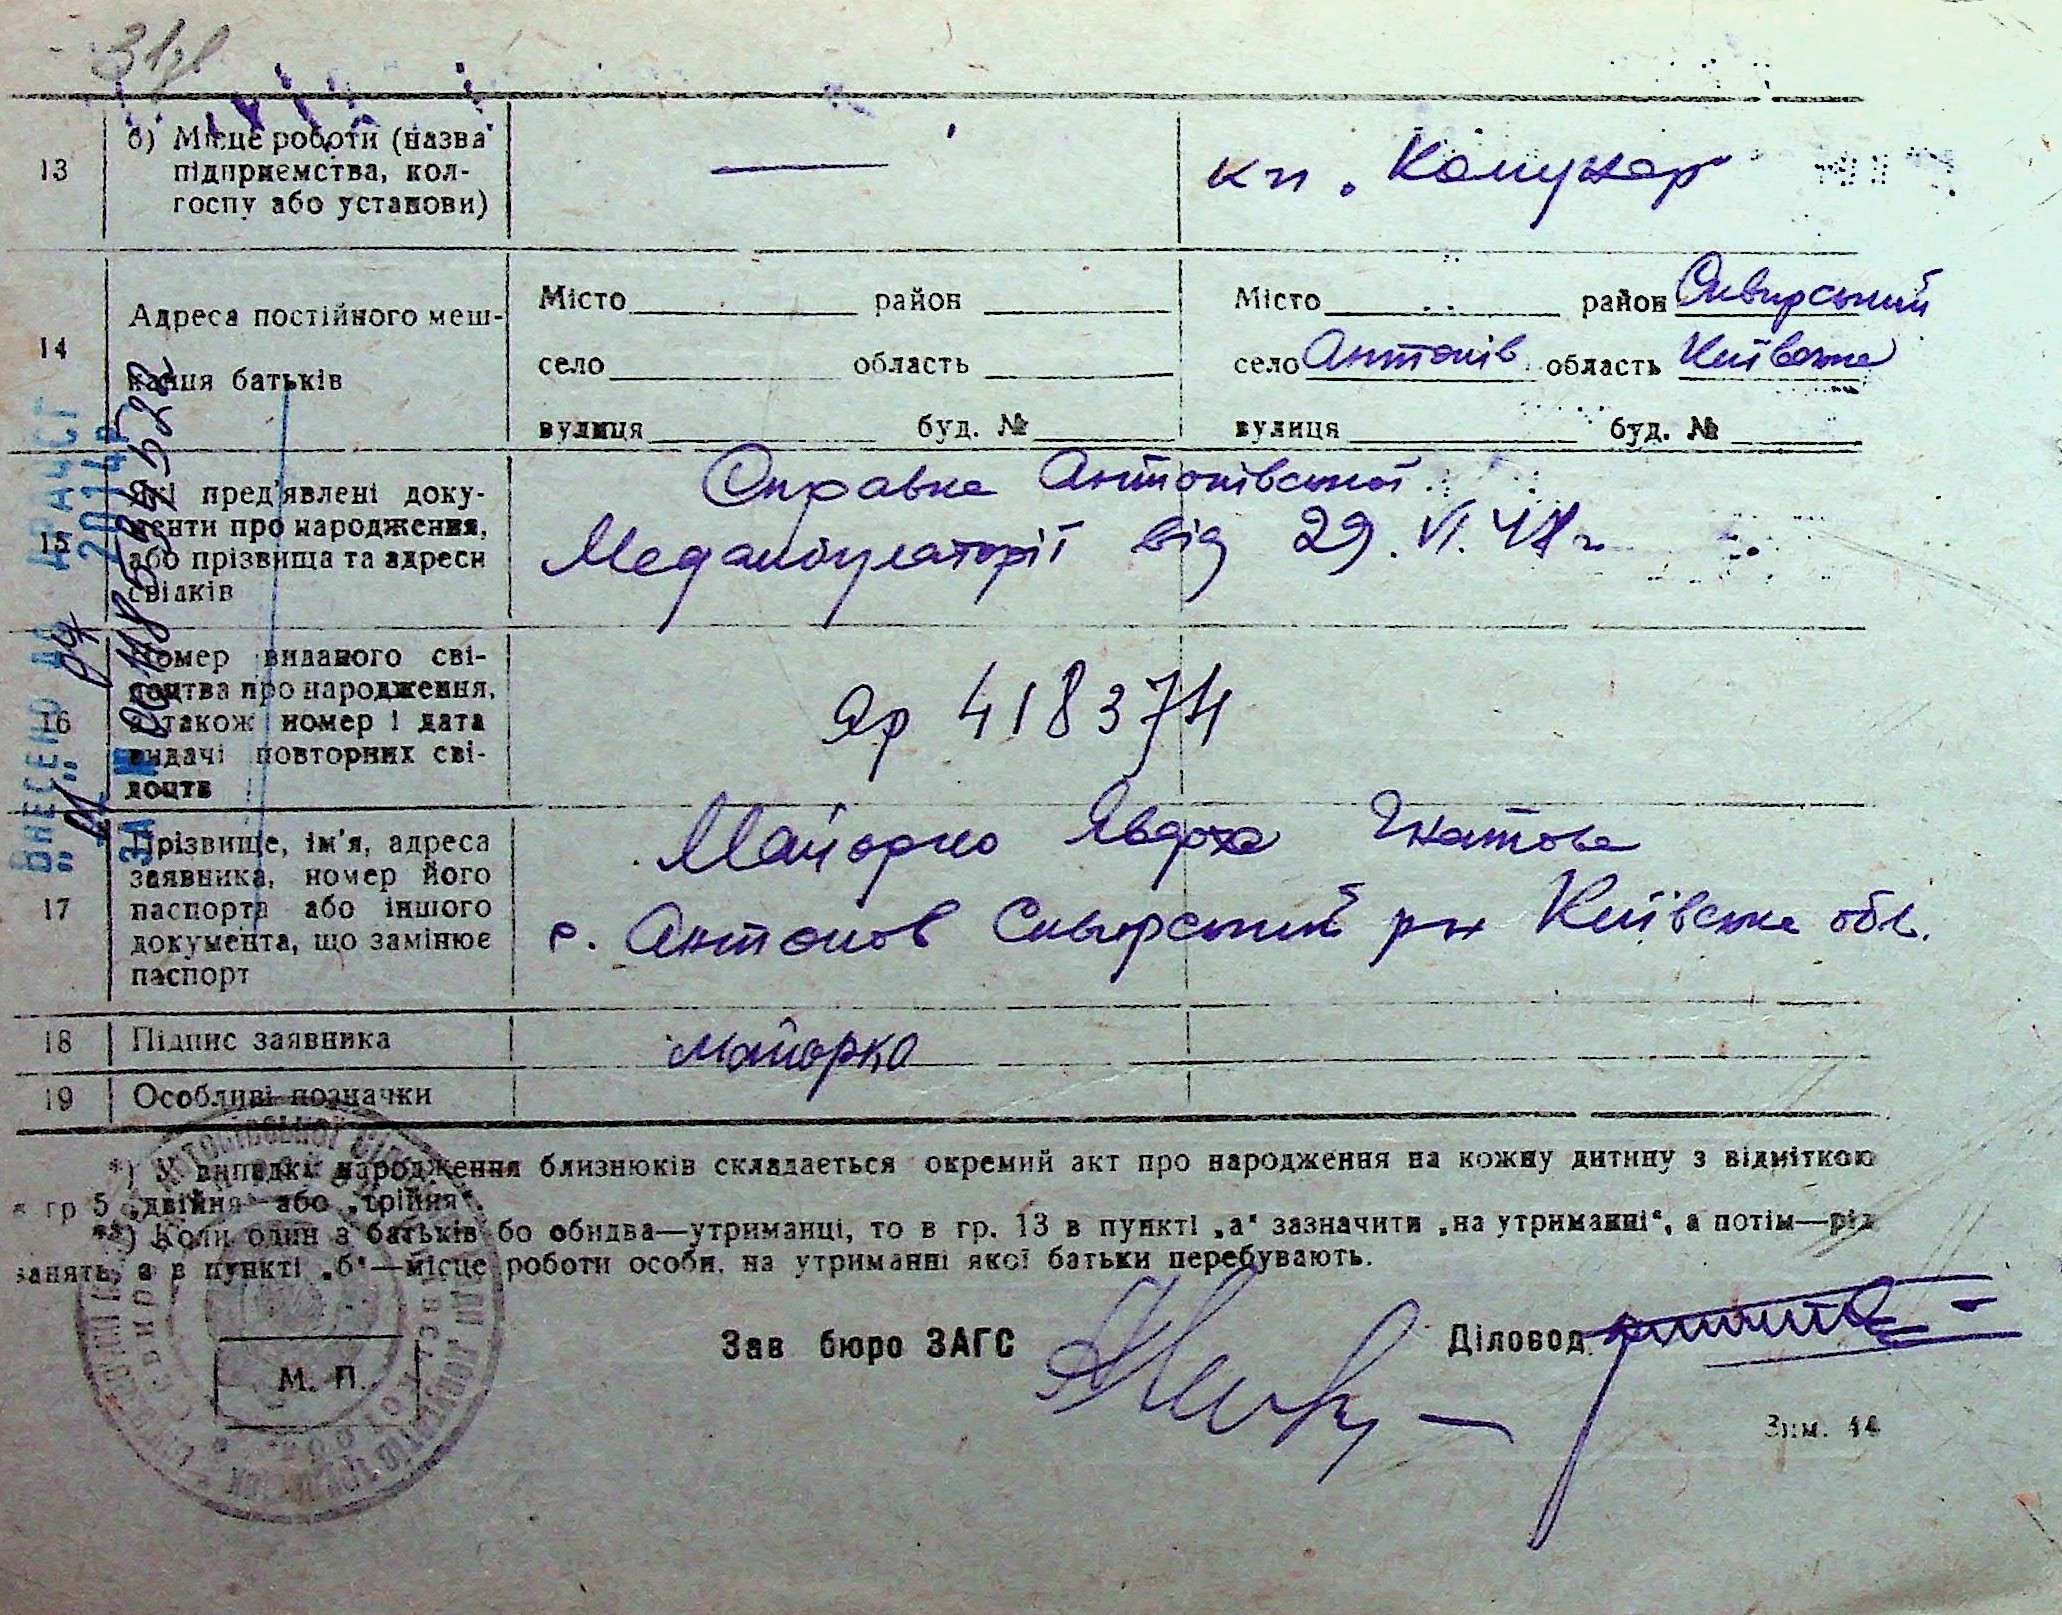 31
13 б) Місце роботи (назва
підприємства, кол-
госпу або установи)
— кп. „Комунар"
14 Адреса постійного меш-
кання батьків
Місто район Місто район Сквирський
село область село Антонів область Київська
вулиця буд. № вулиця буд. №
15 Які пред'явлені доку-
менти про народження,
або прізвища та адреси
свідків
Справка Антонівської
Медамбулаторії від 29. VI. 47 г
16 Номер виданого сві-
доцтва про народження,
а також номер і дата
видачі повторних сві-
доцтв
Яр 418374
17 Прізвище, ім'я, адреса
заявника, номер його
паспорта або іншого
документа, що замінює
паспорт
Майорко Явдоха Гнатова
с. Антонов Сквирський р-н Київська обл.
18 Підпис заявника
Майорко
19 Особливі позначки
ВНЕСЕНО ДО ДРАЦСГ
„11" 04 2014 р
ЗА №
*) У випадкі народження близнюків складається окремий акт про народження на кожну дитину з відміткою
в гр 5 „двійня" або „трійня".
**) Коли один з батьків бо обидва—утриманці, то в гр. 13 в пункті „а" зазначити „на утриманні", а потім—рід
занять, а в пункті „б"—місце роботи особи, на утриманні якої батьки перебувають.
Зав бюро ЗАГС Діловод
М. П.
Зим. 44